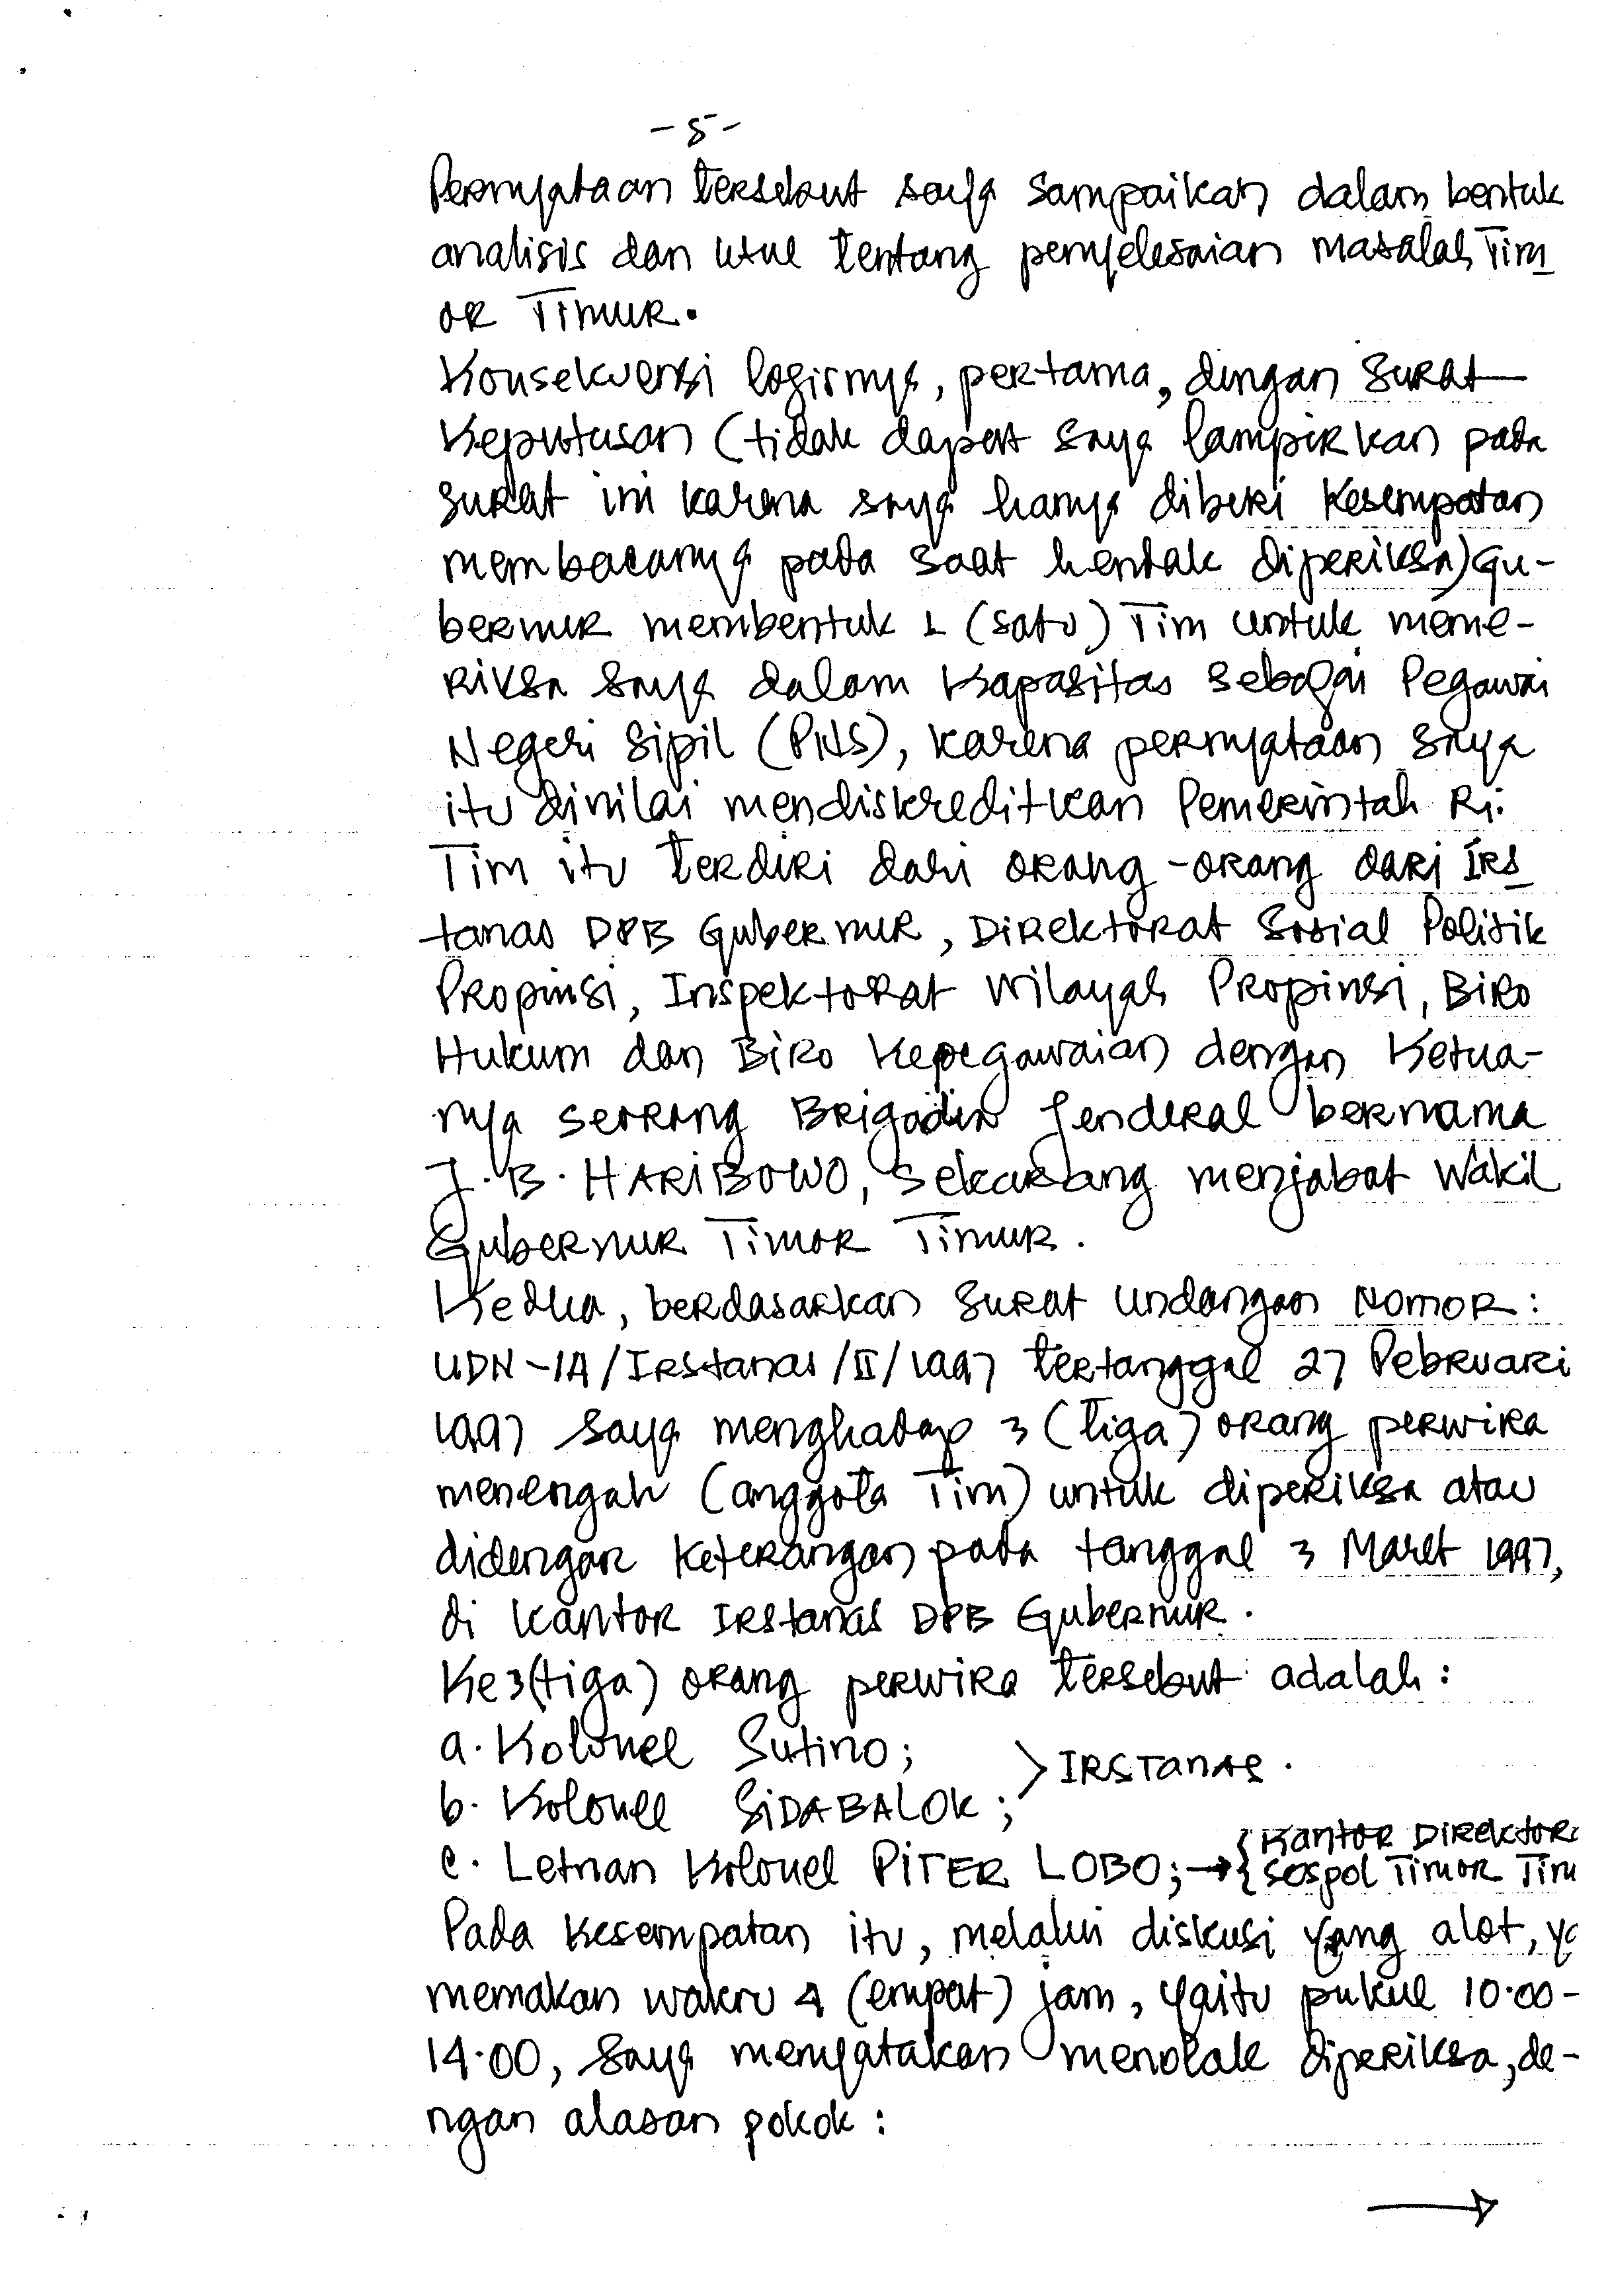 -5-
Pernyataan tersebut saya sampaikan dalam bentuk
analisis dan usul tentang penyelesaian masalah Tim
or Timur.
Konsekuensi logisnya, pertama, dengan Surat
Keputusan (tidak dapat saya lampirkan pada
surat ini karena saya hanya diberi kesempatan
membacanya pada saat hendak diperiksa) Gu-
bernur membentuk 1 (satu) Tim untuk meme-
riksa saya dalam kapasitas sebagai Pegawai
Negeri Sipil (PNS), karena pernyataan saya
itu dinilai mendiskreditkan Pemerintah RI.
Tim itu terdiri dari orang-orang dari Irs
tanas DPB Gubernur, Direktorat Sosial Politik
Propinsi, Inspektorat Wilayah Propinsi, Biro
Hukum dan Biro Kepegawaian dengan Ketua-
nya seorang Brigadir Jenderal bernama
J.B. HARIBOWO, sekarang menjabat Wakil
Gubernur Timor Timur.
Kedua, berdasarkan surat undangan Nomor:
UDN-1A/Irstanas/II/1997 tertanggal 27 Pebruari
1997 saya menghadap 3 (tiga) orang perwira
menengah (anggota Tim) untuk diperiksa atau
didengar keterangan pada tanggal 3 Maret 1997,
di kantor Irstanas DPB Gubernur.
Ke3(tiga) orang perwira tersebut adalah:
a. Kolonel Sutino;
> IRSTANAS.
b. Kolonel SIDABALOK;
c. Letnan Kolonel PITER LOBO; → { Kantor Direktor
{ Sospol Timor Tim
Pada kesempatan itu, melalui diskusi yang alot, ya
memakan waktu 4 (empat) jam, yaitu pukul 10.00-
14.00, saya menyatakan menolak diperiksa, de-
ngan alasan pokok:
→